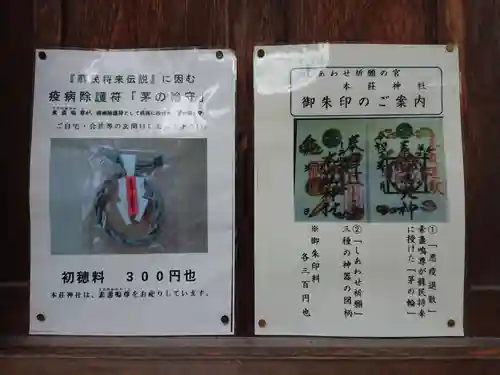 『蘇民将来伝説』に因む
疫病除護符「茅の輪守」
ご自宅・会社等の玄関口に
初穂料 300円也
本荘神社は、素盞嗚尊をお祀りしています。
しあわせ祈願の宮
本荘神社
御朱印のご案内
①「悪疫退散」
素盞嗚尊が蘇民将来
に授けた「茅の輪」
②「しあわせ祈願」
三種の神器の図柄
※御朱印料 各三百円也